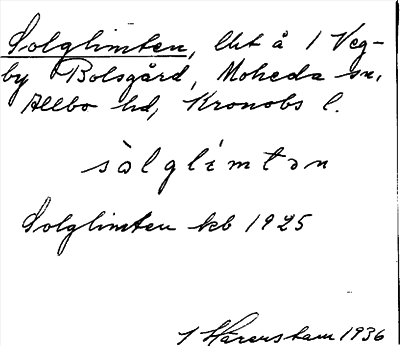 Solglimten, lht å 1 Veg-
by Bolsgård, Moheda sn,
Allbo hd, Kronobs l.
sòlglímtən
Solglimten kb 1925
1936